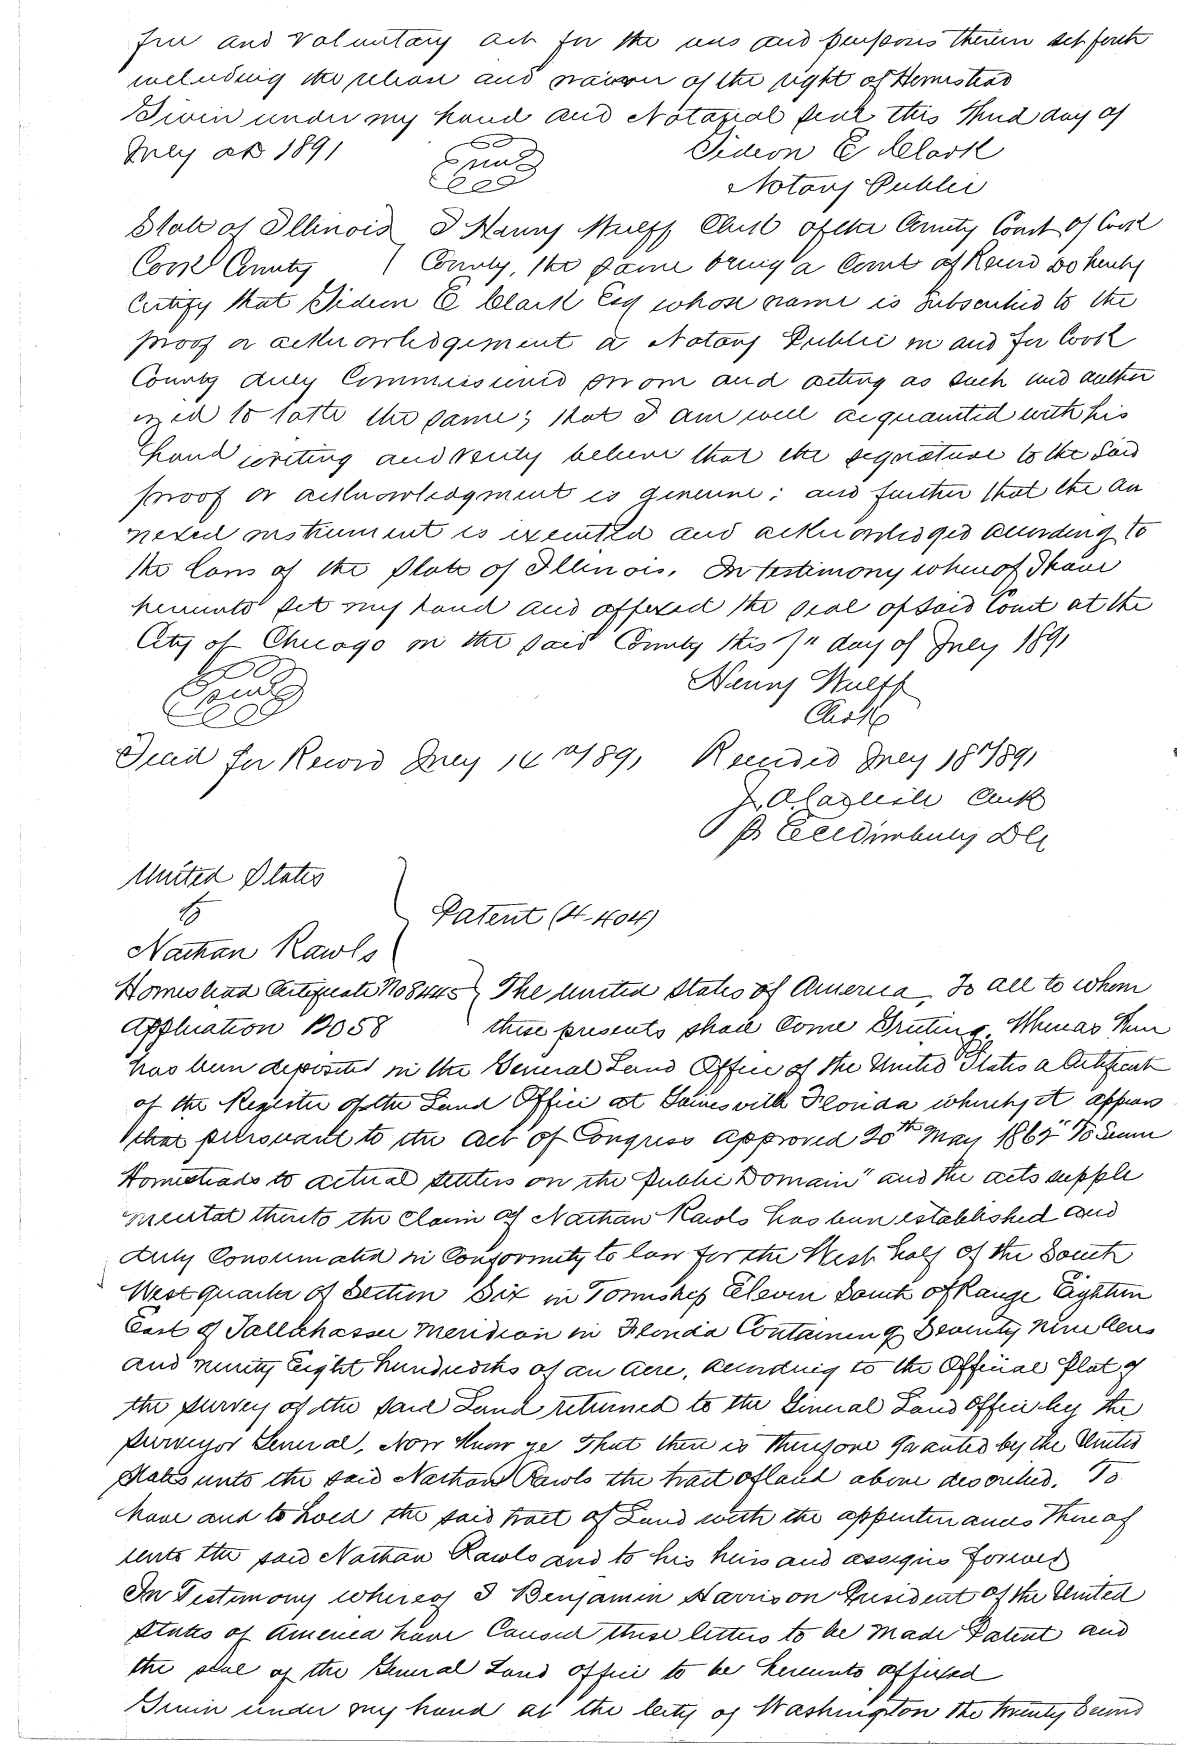 free and voluntary act for the uses and purposes therein set forth
including the release and waiver of the right of Homestead
Given under my hand and Notarial seal this third day of
July AD 1891
Gideon E Clark
Notary Public
State of Illinois I Henry Wulff Clerk of the County Court of Cook
Cook County County, the same being a Court of Record Do hereby
certify that Gideon E Clark Esq whose name is subscribed to the
proof or acknowledgement a Notary Public in and for Cook
County duly Commissioned sworn and acting as such and author
ized to take the same; that I am well acquainted with his
hand writing and verily believe that the signature to the said
proof or acknowledgment is genuine; and further that the an
nexed instrument is executed and acknowledged according to
the laws of the State of Illinois. In testimony whereof I have
hereunto set my hand and affixed the seal of said Court at the
City of Chicago in the said County this 7th day of July 1891
Henry Wulff
Clerk
Filed for Record July 14th 1891 Recorded July 18th 1891
Clerk
United States
to
Patent (4-404)
Nathan Rawls
Homestead Certificate No 8445 The United States of America, To all to whom
Application 13058 these presents shall Come Greeting. Whereas there
has been deposited in the General Land Office of the United States a Certificate
of the Register of the Land Office at Gainesville Florida whereby it appears
that pursuant to the Act of Congress approved 20th May 1862 "To Secure
Homesteads to actual settlers on the Public Domain" and the acts supple
mental thereto the claim of Nathan Rawls has been established and
duly Consumated in Conformity to law for the West half of the South
West quarter of Section Six in Township Eleven South of Range Eighteen
East of Tallahassee Meridian in Florida Containing Seventy nine Acres
and ninety Eight hundredths of an Acre, according to the Official Plat of
the survey of the said Land returned to the General Land Office by the
Surveyor General. Now Know ye That there is therefore granted by the United
States unto the said Nathan Rawls the tract of land above described. To
have and to hold the said tract of Land with the appurtenances thereof
unto the said Nathan Rawls and to his heirs and assigns forever
In Testimony whereof I Benjamin Harrison President of the United
States of America have Caused these letters to be made Patent and
the seal of the General Land office to be hereunto affixed
Given under my hand at the City of Washington the twenty Second